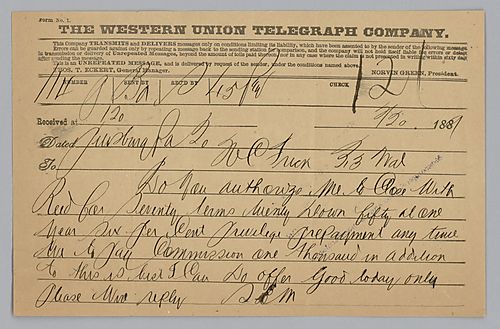 Form No. 1.
THE WESTERN UNION TELEGRAPH COMPANY.
This Company TRANSMITS and DELIVERS messages only on conditions limiting its liability, which have been assented to by the sender of the following message.
Errors can be guarded against only by repeating a message back to the sending station for comparison, and the company will not hold itself liable for errors or delays
in transmission or delivery of Unrepeated Messages, beyond the amount of tolls paid thereon, nor in any case where the claim is not presented in writing within sixty days
after sending the message.
This is an UNREPEATED MESSAGE, and is delivered by request of the sender, under the conditions named above.
THOS. T. ECKERT, General Manager. NORVIN GREEN, President.
NUMBER SENT BY REC'D BY CHECK
Received at 188
Dated Pa 20
To H C Frick
Do You authorize Me to Close With
Reid for Seventy terms twenty down fifty at one
Year Six Per Cent Privilege prepayment any time
to Pay Commission one thousand in addition
to this is best I Can Do offer Good today only
Please Wire reply